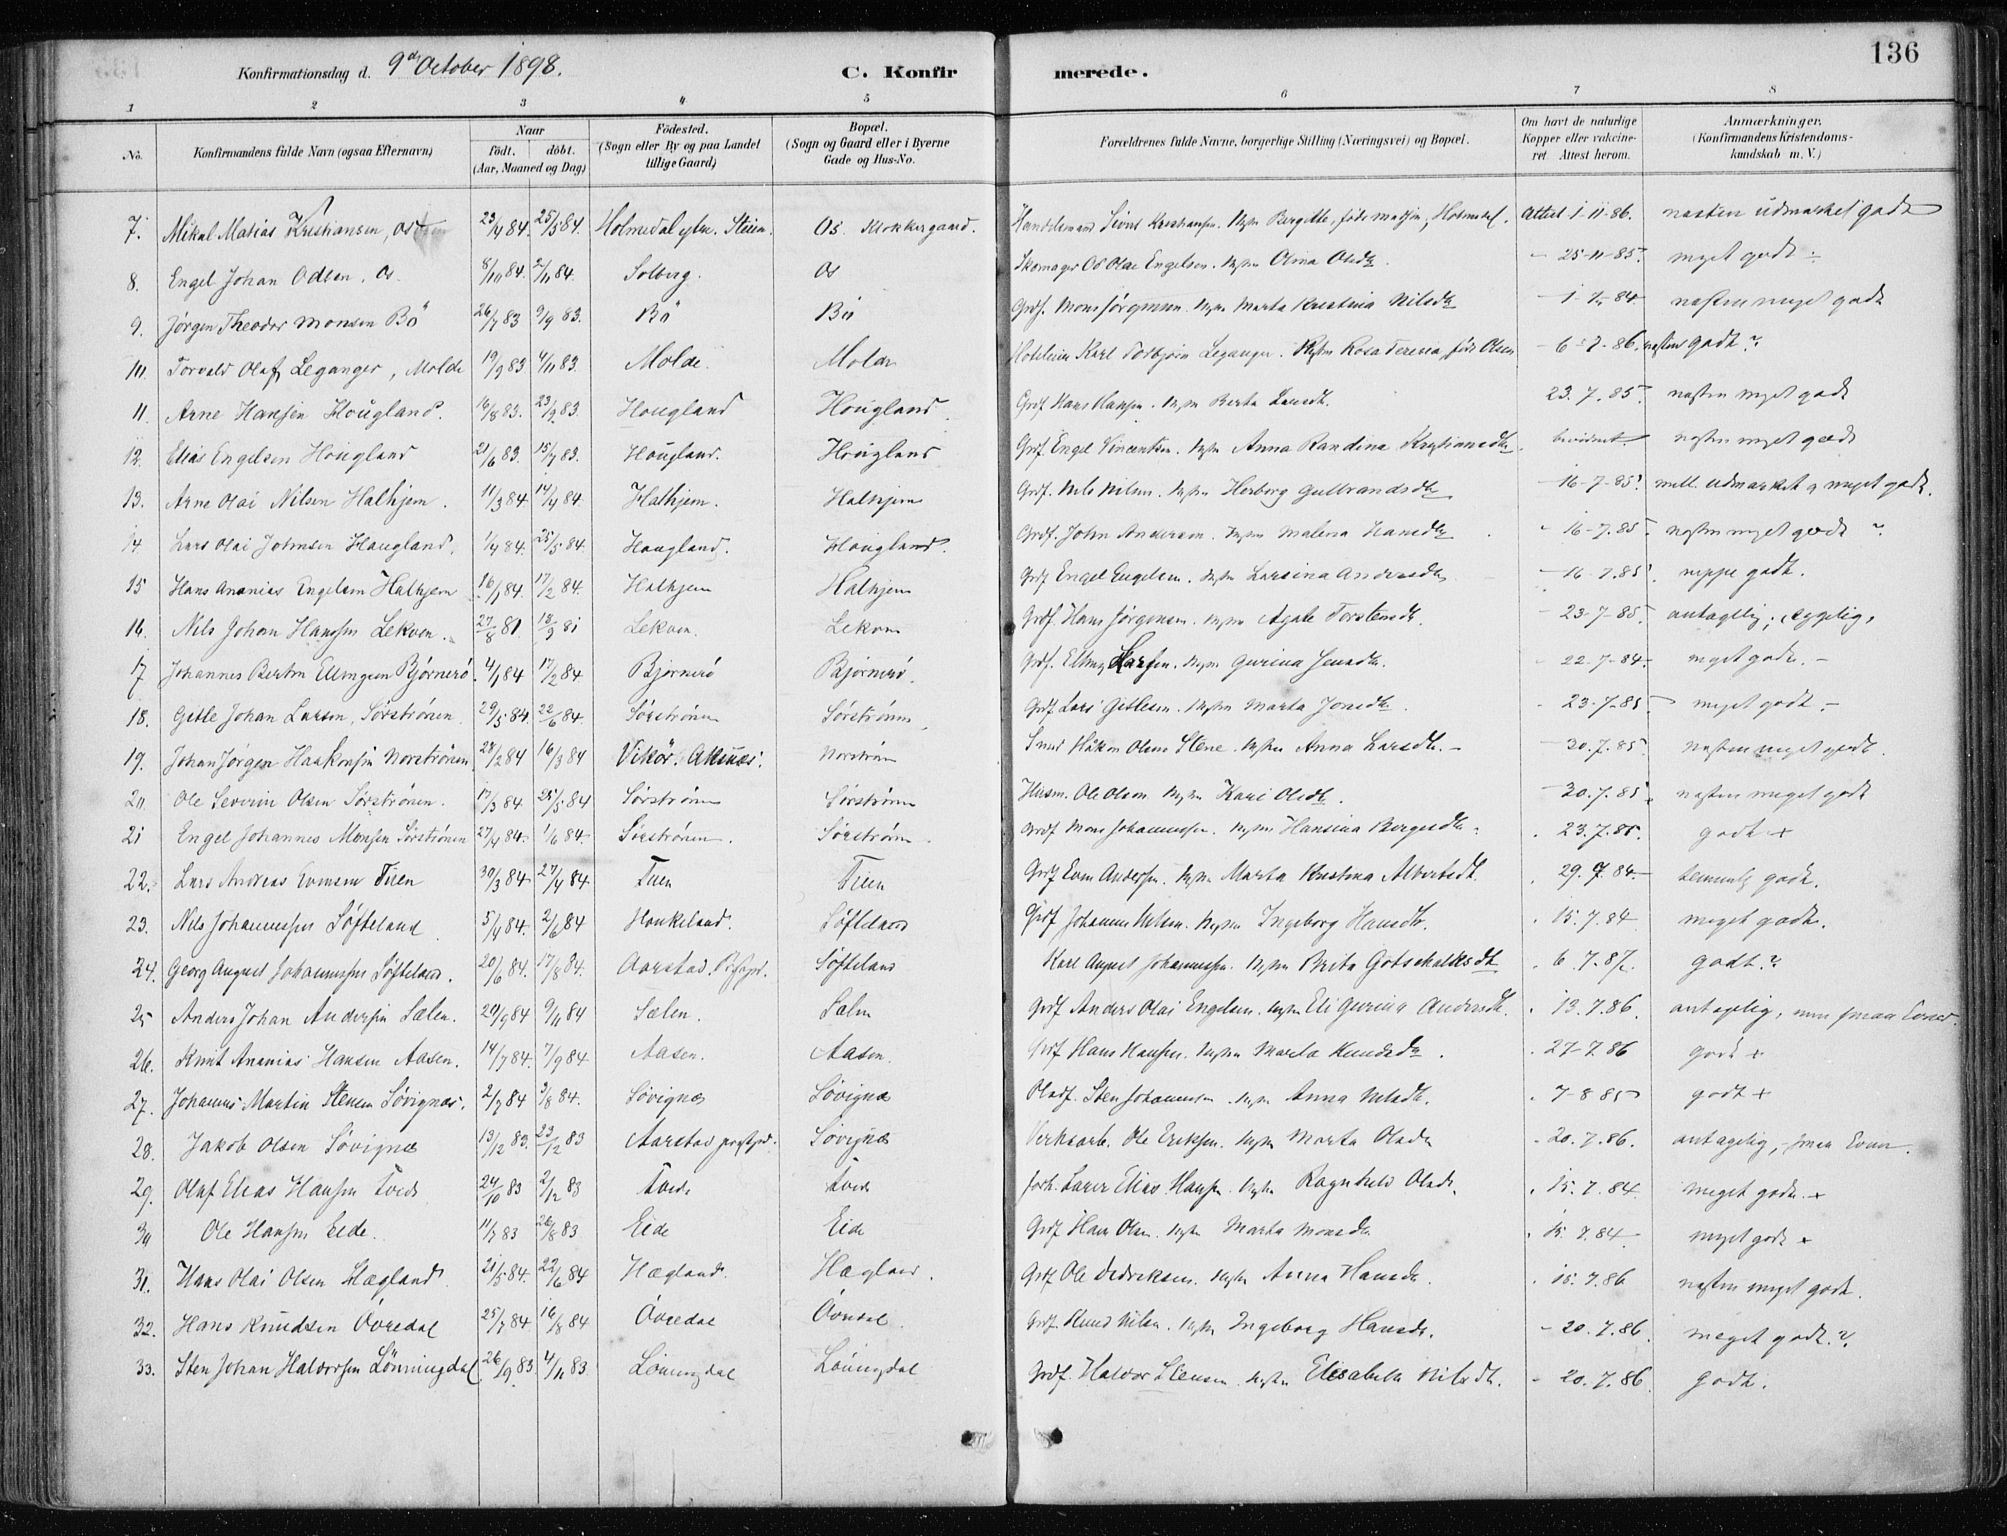 136
Konfirmationsdag d. 9de October 1898. C. Konfirmerede.
1 2 3 4 5 6 7 8
No. Konfirmandens fulde Navn (ogsaa Efternavn) Naar födt. döbt. (Aar, Maaned og Dag) Födested. (Sogn eller By og paa Landet tillige Gaard) Bopæl. (Sogn og Gaard eller i Byerne Gade og Hus-No. Forældrenes fulde Navne, borgerlige Stilling (Næringsvei) og Bopæl. Om havt de naturlige Kopper eller vakcineret. Attest herom. Anmærkninger. (Konfirmandens Kristendomskundskab m.V.)
7. Mikal Matias Kristiansen, Os 23/4 84. 25/5 84. Holmedal Os. Klokkergaard. Attest 1-11-86. næsten udmærket godt
8. Engel Johan Odsen. Os. 8/10 84. 2/11 84. Solberg. Os Skomager Od Olai Engelsen. Hustru Olina Olsdtr. - 25-11-85. meget godt ÷
9. Jørgen Theodor Monsen Bö 26/7 83 9/9 83. Bö Bö Grdf. Mons Jörgensen. Hustru Marta Kristina Nilsdtr - 1-7-84 næsten meget godt
10. Torvald Olaf Leganger, Molde 19/9 83 4/11 83. Molde. Molde Karl Torbjørn Leganger. Hustru Rosa født Olsen - 6-7-86. næsten godt ?
11. Arne Hansen Hougland. 16/8 83. 23/9 83. Hougland Hougland. Grdf. Hans Hansen. Hustru Berta Larsdtr. 23.7.85. næsten meget godt
12. Elias Engelsen Hougland 21/6 83. 15/7 83. Hougland. Hougland Grdf. Engel Vincentsen. Hustru Anna Randina Kristiansdtr. næsten meget godt
13. Arne Olai Nilsen Halhjem. 11/3 84. 14/4 84. Halhjem. Halhjem Grdf. Nils Nilsen. Hustru Herborg Gulbrandsdtr - 16-7-85. mell. udmærket og meget godt.
14. Lars Olai Johnsen Hougland. 1/4 84. 25/5 84. Hougland. Hougland. Grdf. John Anderson. Hustru Malena Hansdtr - 16-7.85. næsten meget godt ?
15 Hans Ananias Engelsen Halhjem 16/1 84. 17/2 84. Halhjem Halhjem Grdf Engel Engelsen. Hustru Larsina Andersdtr - 16-7.85. neppe godt.
16. Nils Johan Hansen Lekven. 27/8 81. 18/9 81 Lekven. Lekven Grdf. Hans Jörgensen. Hustru Agate Torstensdtr. - 23-7-85. antagelig; sygelig.
17 Johannes Bertin Ellingsen Bjørnerö. 4/1 84 17/2 84 Bjørnerö Bjørnerö. Grdf. Elling Larsen. Hustru Gurina Jensdtr. - 22-7-84. meget godt. -
18. Gitle Johan Larsen, Sörströnen. 29/5 84. 22/6 84. Sörströnen Sörströnen Grdf. Lars Gitlesen. Hustru Marta Jonsdtr. - 23-7-85. meget godt. -
19. Johan Jörgen Haakonsen Norströnen 28/2 84 16/3 84 Vikör. Norströnen Smed Håkon Olsen Stene. Hustru Anna Larsdtr. - 30.7.85. næsten meget godt.
20. Ole Severin Olsen Sörströnen. 17/3 84. 25/5 84 Sörströnen Sörströnen Husm. Ole Olsen Hustru Kari Olsdtr. - 30.7.85. næsten meget godt
21 Engel Johannes Monsen Sörströnen 27/4 84. 1/6 84. Sörströnen. Sörströnen. Grdf Mons Johannessen. Hustru Hansina Børgesdtr. . 23.7.85. godt +
22. Lars Andreas Evensen Tuen 30/3 84 27/4 84 Tuen Tuen Grdf Even Andersen. Hustru Marta Kristina Albertsdtr. . 29.7.84. temmelig godt.
23. Nils Johannessen Söfteland 5/4 84. 2/6 84 Haukeland. Söfteland Grdf Johannes Nilsen. Hustru Ingeborg Hansdtr. . 15.7.84 meget godt.
24. Georg August Johannessen Söfteland. 20/6 84. 17/8 84. Aarstad. Söfteland Karl August Johannessen. Hustru Brita Gotskalksdtr . 6.7.87. godt ?
25 Anders Johan Andersen Sælen. 20/9 84 9/11 84 Sælen. Sælen Grdf Anders Olai Engelsen. Hustru Eli Gurina Andersdtr. . 13.7.86. antagelig, men smaa Evner.
26. Knut Ananias Hansen Aasen. 14/7 84. 7/9 84 Aasen. Aasen. Grdf Hans Hansen. Hustru Marta Knudsdtr. . 27-7.86 godt +
27. Johannes Martin Stensen Sövignæs. 2/7 84 3/8 84. Sövignæs Sövignæs Sten Johannesen. Hustru Anna Nilsdtr. . 7-8 85 godt +
28. Jakob Olsen Sövignæs 13/12 83. 23/12 83 Aarstad Sövignæs Ole Eriksen. Hustru Marta Olsdtr - 20.7.86. antagelig, smaa Evner.
29. Olaf Elias Hansen Tveit 24/10 83 2/12 83 Tveit Tveit Elias Hansen. Hustru Ragnhild Olsdtr. . 15.7.84. meget godt. +
30 Ole Hansen Eide. 11/7 83 26/8 83 Eide Eide Grdf Hans Olsen. Hustru Marta Monsdtr . 15.7.84. meget godt +
31. Hans Olai Olsen Hægland 21/5 84. 22/6 84 Hægland. Hægland. Grdf Ole Didriksen. Hustru Anna Hansdtr. . 15.7.86 næsten meget godt.
32. Hans Knudsen Övredal 25/7 84. 16/8 84 Övredal Övredal. Grdf. Knud Nilsen. Hustru Ingeborg Hansdtr. - 20.7.86. meget godt.?
33. Sten Johan Haldorsen Lönningdal 26/9 83 4/11 83 Lönningdal Lönningdal Grdf. Haldor Stensen. Hustru Elisabeth Nilsdtr. - 20.7.86. godt.